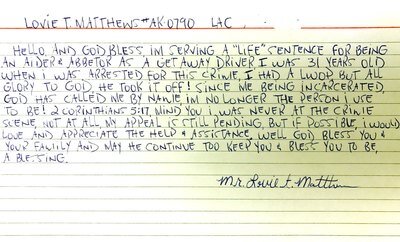 LOVIE T MATTHEWS #AK0790 LAC
HELLO AND GOD BLESS, IM SERVING A "LIFE" SENTENCE FOR BEING
AN AIDER & ABBETOR AS A GET AWAY DRIVER I WAS 31 YEARS OLD
WHEN I WAS ARRESTED FOR THIS CRIME, I HAD A LWOP BUT ALL
GLORY TO GOD, HE TOOK IT OFF! SINCE ME BEING INCARCERATED,
GOD HAS CALLED ME BY NAME IM NO LONGER THE PERSON I USE
TO BE! 2 CORINTHIANS 5:17, MIND YOU I WAS NEVER AT THE CRIME
SCENE, NOT AT ALL, MY APPEAL IS STILL PENDING, BUT IF POSSIBLE, I WOULD
LOVE, AND APPRECIATE THE HELP & ASSISTANCE, WELL GOD BLESS YOU &
YOUR FAMILY AND MAY HE CONTINUE TOO KEEP YOU & BLESS YOU TO BE
A BLESSING.
Mr. Lovie t. Matthews